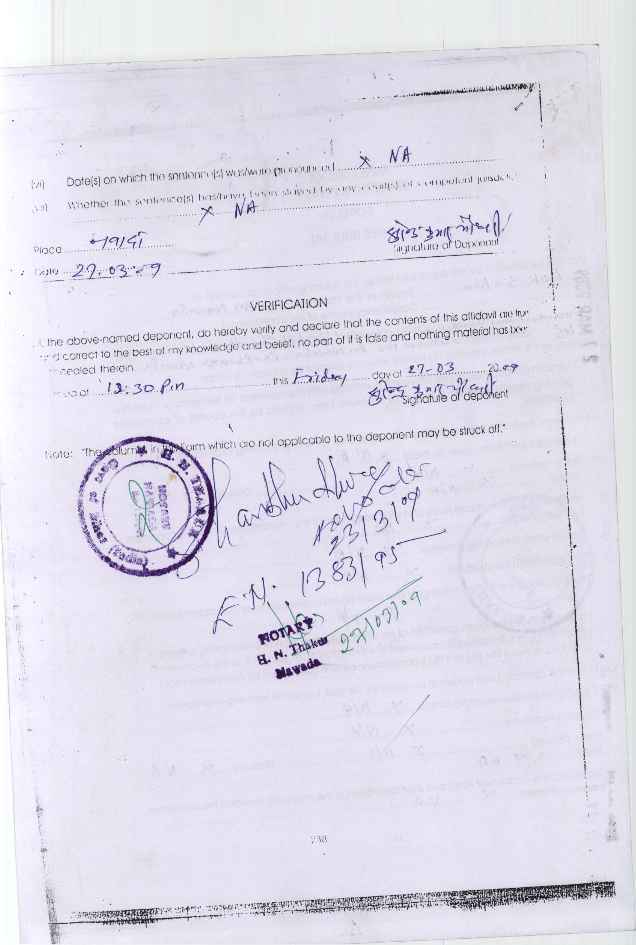 Date(s) on which the sentence(s) was/were pronounced ........ X NA
Whether the sentence(s) has/have been stayed by any court(s) of competent jurisdic
X NA
Place नवादा
Signature of Deponent
Date 27-03-09
VERIFICATION
the above-named deponent, do hereby verify and declare that the contents of this affidavit are true
correct to the best of my knowledge and belief, no part of it is false and nothing material has been
cealed therein.
at 12:30 P.m this Friday day of 27-03 2009
Signature of deponent
Note: "The columns in this form which are not applicable to the deponent may be struck off."
H. N. THAKUR
23/3/09
E.N. 1383/95
NOTARY
H. N. Thakur
Nawada
27/03/09
238